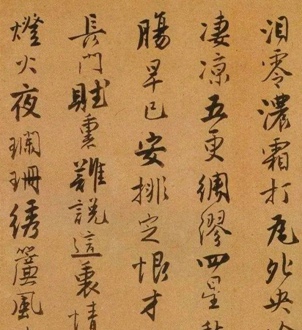 泪零濃霜打瓦夗央
凄凉五更綢繆四星
腸早已安排定恨才
長門賦裏難說這裏情
燈火夜瓓珊綉簾風